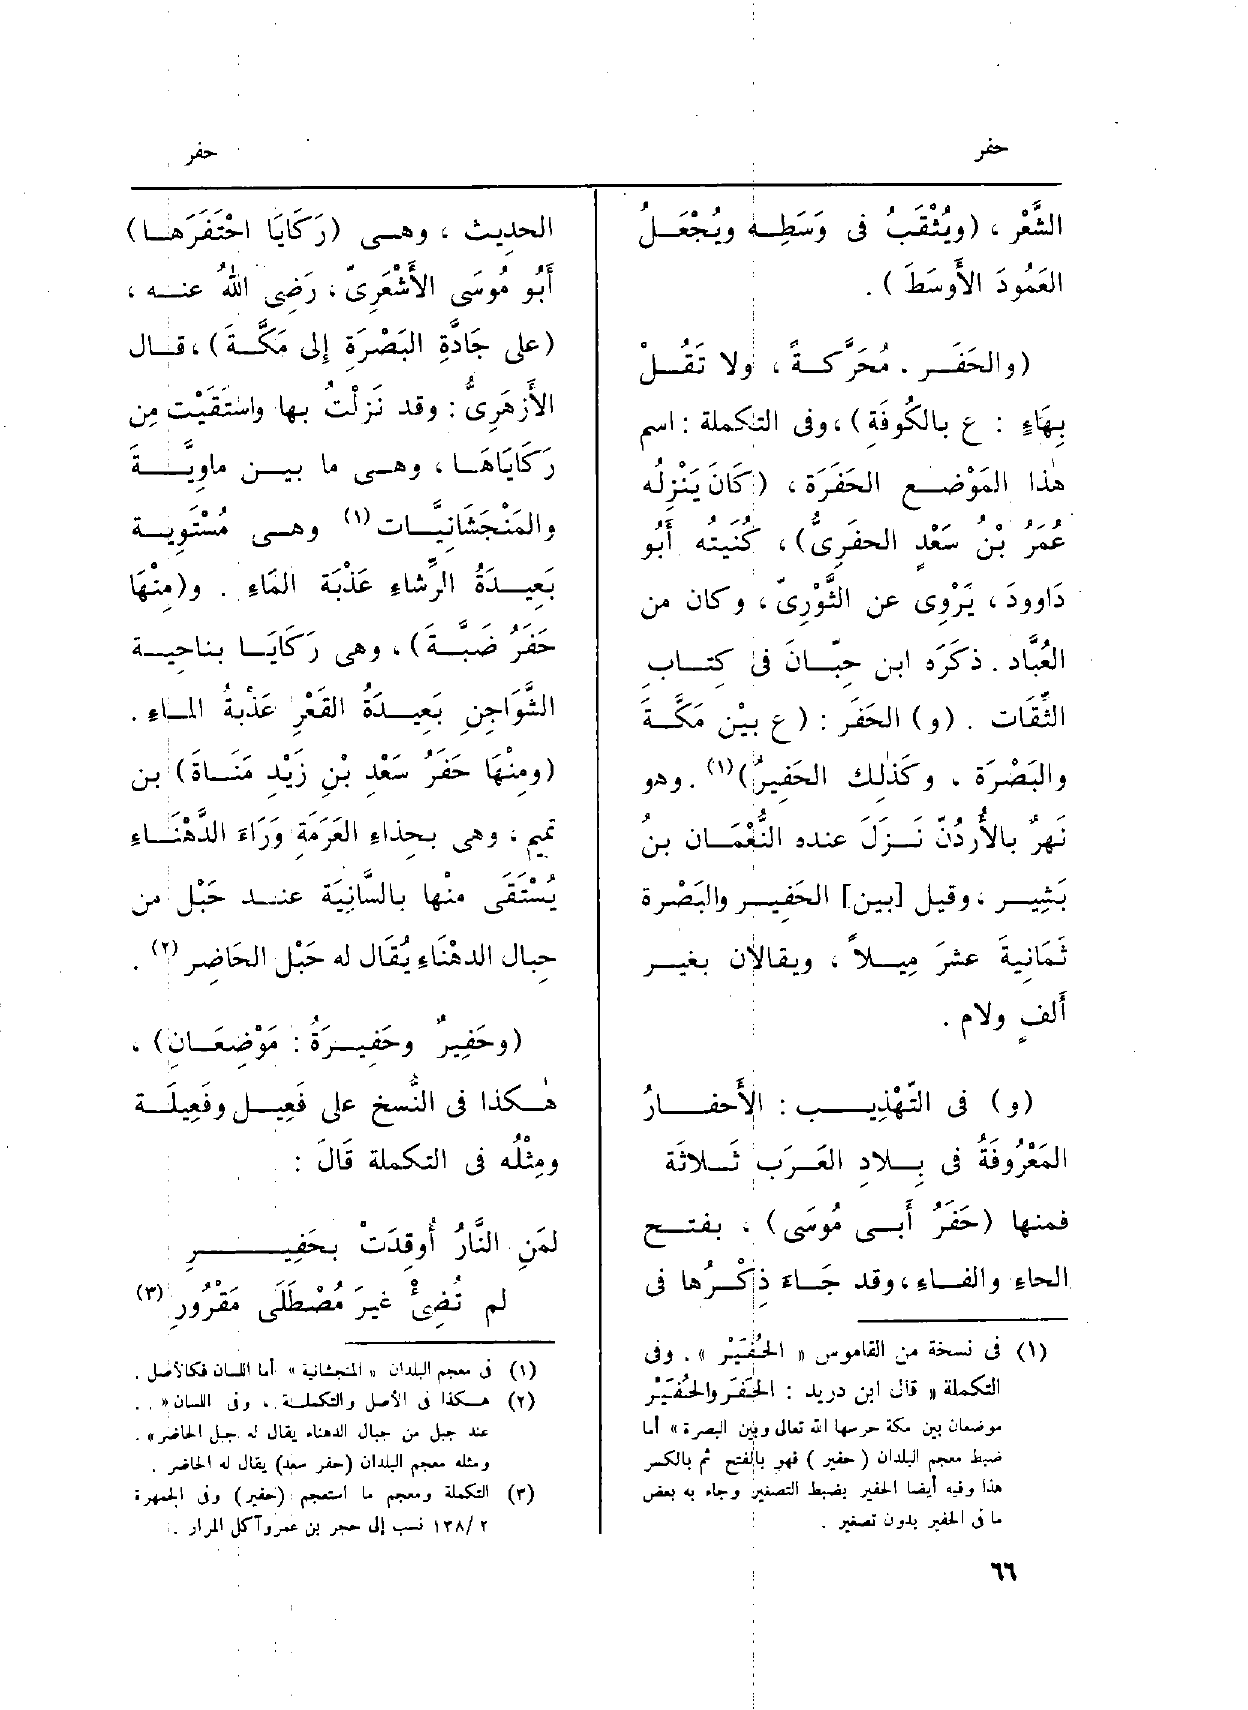 حفر
حفر
الشَّعْر ، (ويُثْقَبُ فى وَسَطِه ويُجْعَلُ
العَمُودَ الأَوسَطَ ) .
(والحَفَر . مُحَرَّكةً ، ولا تَقُلْ
بِهَاءٍ : ع بالكُوفَةِ)، وفى التكملة : اسم
هٰذا المَوْضع الحَفَرَة ، (كَانَ يَنْزِلُه
عُمَرُ بْنُ سَعْدٍ الحفَرِىُّ)، كُنْيَتُه أَبُو
دَاوودَ ، يَرْوِى عن الثَّوْرِىّ ، وكان من
العُبَّاد . ذكَرَه ابن حِبّانَ فى كتاب
الثِّقَات . (و) الحَفَر : (ع بيْن مَكَّةَ
والبَصْرَة . وكَذٰلِك الحَفِيرُ)(١) . وهو
نَهرٌ بالأُردُنّ نَزلَ عنده النُّعْمَان بنُ
بَشِير ، وقيل [بين] الحَفِير والبَصْرة
ثَمَانِيةَ عشرَ مِيلاً ، ويقالان بغير
أَلفٍ ولام .
(و) فى التَّهْذِيب : الأَحفارُ
المَعْرُوفَةُ فى بلادِ العَرَب ثَلاثة
فمنها (حَفَرُ أَبى مُوسَى) ، بفتح
الحاءِ والفاءِ ، وقد جَاءَ ذِكْرُها فى
(١) فى نسخة من القاموس « الحُفَيْر » . وفى
التكملة « قال ابن دريد : الحَفَر والحُفَيْر
موضعان بين مكة حرسها الله تعالى وبين البصرة » أما
ضبط معجم البلدان ( حفير ) فهو بالفتح ثم بالكسر
هذا وفيه أيضا الحفير بضبط التصغير وجاء به بعض
ما فى الحفير بدون تصغير .
الحديث ، وهى (رَكَايَا احْتَفَرَهَا)
أَبُو مُوسَى الأَشْعَرِىّ ، رَضِى اللهُ عنه ،
(على جَادَّةِ البَصْرَةِ إلى مَكَّةَ) ، قال
الأَزهَرِىُّ : وقد نَزلْتُ بها واستَقَيْت مِن
رَكَايَاهَا ، وهى ما بين ماوِيَّةَ
والمَنْجَشَانِيَّات(١) وهى مُسْتَوِية
بَعِيدَةُ الرِّشاءِ عَذْبَة المَاءِ . و(مِنْهَا
حَفَرُ ضَبَّةَ) ، وهى رَكَايَا بناحِية
الشَّوَاجِنِ بَعِيدَةُ القَعْرِ عَذْبةُ الماءِ .
(ومِنْهَا حَفَرُ سَعْدِ بْنِ زَيْدِ مَنَاةَ) بن
تميم ، وهى بحِذاءِ العَرَمَةِ وَرَاءَ الدَّهْنَاءِ
يُسْتَقَى منْها بالسَّانِيَة عند حَبْل من
حِبال الدهْنَاءِ يُقَال له حَبْل الحَاضِر(٢) .
(وحَفِيرٌ وحَفِيرَةُ : مَوْضِعَانِ) .
هٰكذا فى النُّسخ على فَعِيل وفَعِيلَة
ومِثْلُه فى التكملة قَالَ :
لمَنِ النَّارُ أُوقِدَتْ بحَفِيرِ
لم تُضِئْ غيرَ مُصْطَلًى مَقْرُورِ(٣)
(١) فى معجم البلدان « المنجشانية » أما اللسان فكالأصل .
(٢) هكذا فى الأصل والتكملة ، وفى اللسان « . .
عند جبل من جبال الدهناء يقال له جبل الحاضر » .
ومثله معجم البلدان (حفر سعد) يقال له الحاضر .
(٣) التكملة ومعجم ما استعجم (حفير) وفى الجمهرة
٢ /١٣٨ نسب إلى حجر بن عمرو آكل المرار .
٦٦